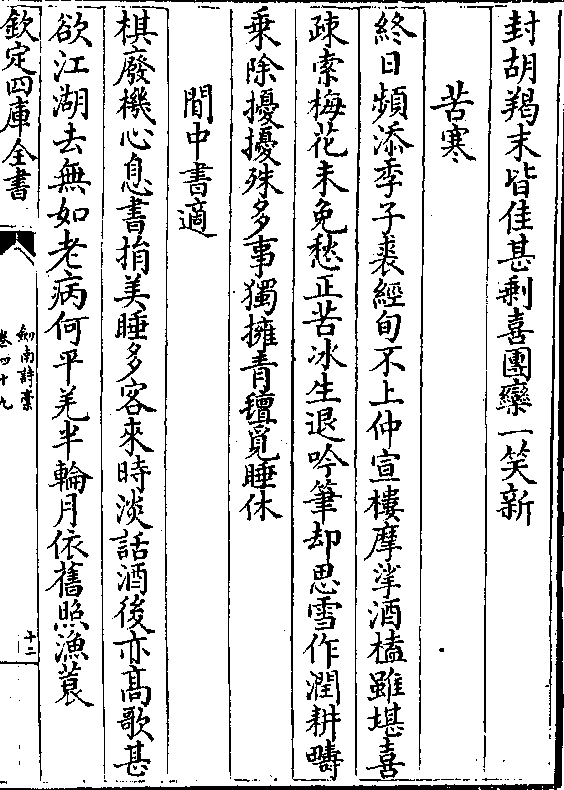 封胡羯末皆佳甚剩喜團欒一笑新
苦寒
終日頻添季子裘經旬不上仲宣樓摩挲酒榼雖堪喜
疎索梅花未免愁正苦冰生退吟筆却思雪作潤耕疇
乗除擾擾殊多事獨擁青氊覓睡休
閒中書適
棋廢機心息書捐美睡多客來時淡話酒後亦髙歌甚
欲江湖去無如老病何平羌半輪月依舊照漁蓑
欽定四庫全書
劍南詩槀
卷四十九
十二